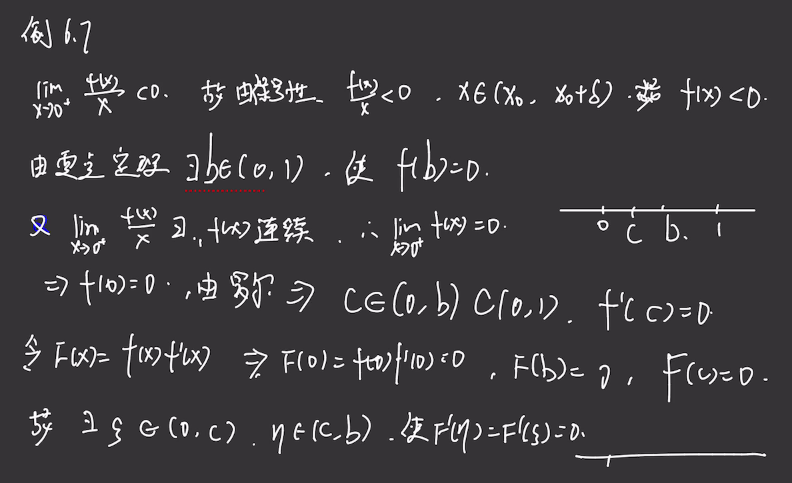 例 6.7
lim x→0⁺ f(x)/x <0. 故由保号性. f(x)/x <0 . x∈(x₀, x₀+δ). 故 f(x)<0.
由零点定理 ∃b∈(0,1). 使 f(b)=0.
又 lim x→0⁺ f(x)/x ∃., f(x)连续. ∴ lim x→0⁺ f(x)=0.
0 c b. 1
⇒ f(0)=0., 由罗尔 ⇒ C∈(0,b)⊂(0,1). f'(c)=0.
令 F(x)= f(x)f'(x) ⇒ F(0)=f(0)f'(0)=0 , F(b)=0, F(c)=0.
故 ∃ ξ∈(0,c). η∈(c,b). 使F'(η)=F'(ξ)=0.